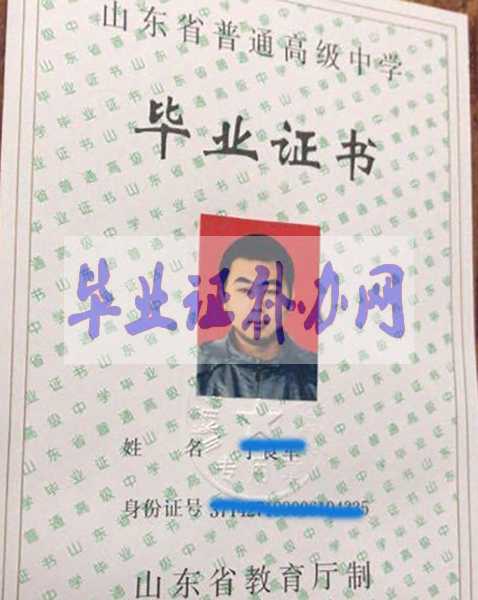 山东省普通高级中学
毕业证书
毕业证补办网
姓 名
身份证号
山东省教育厅制